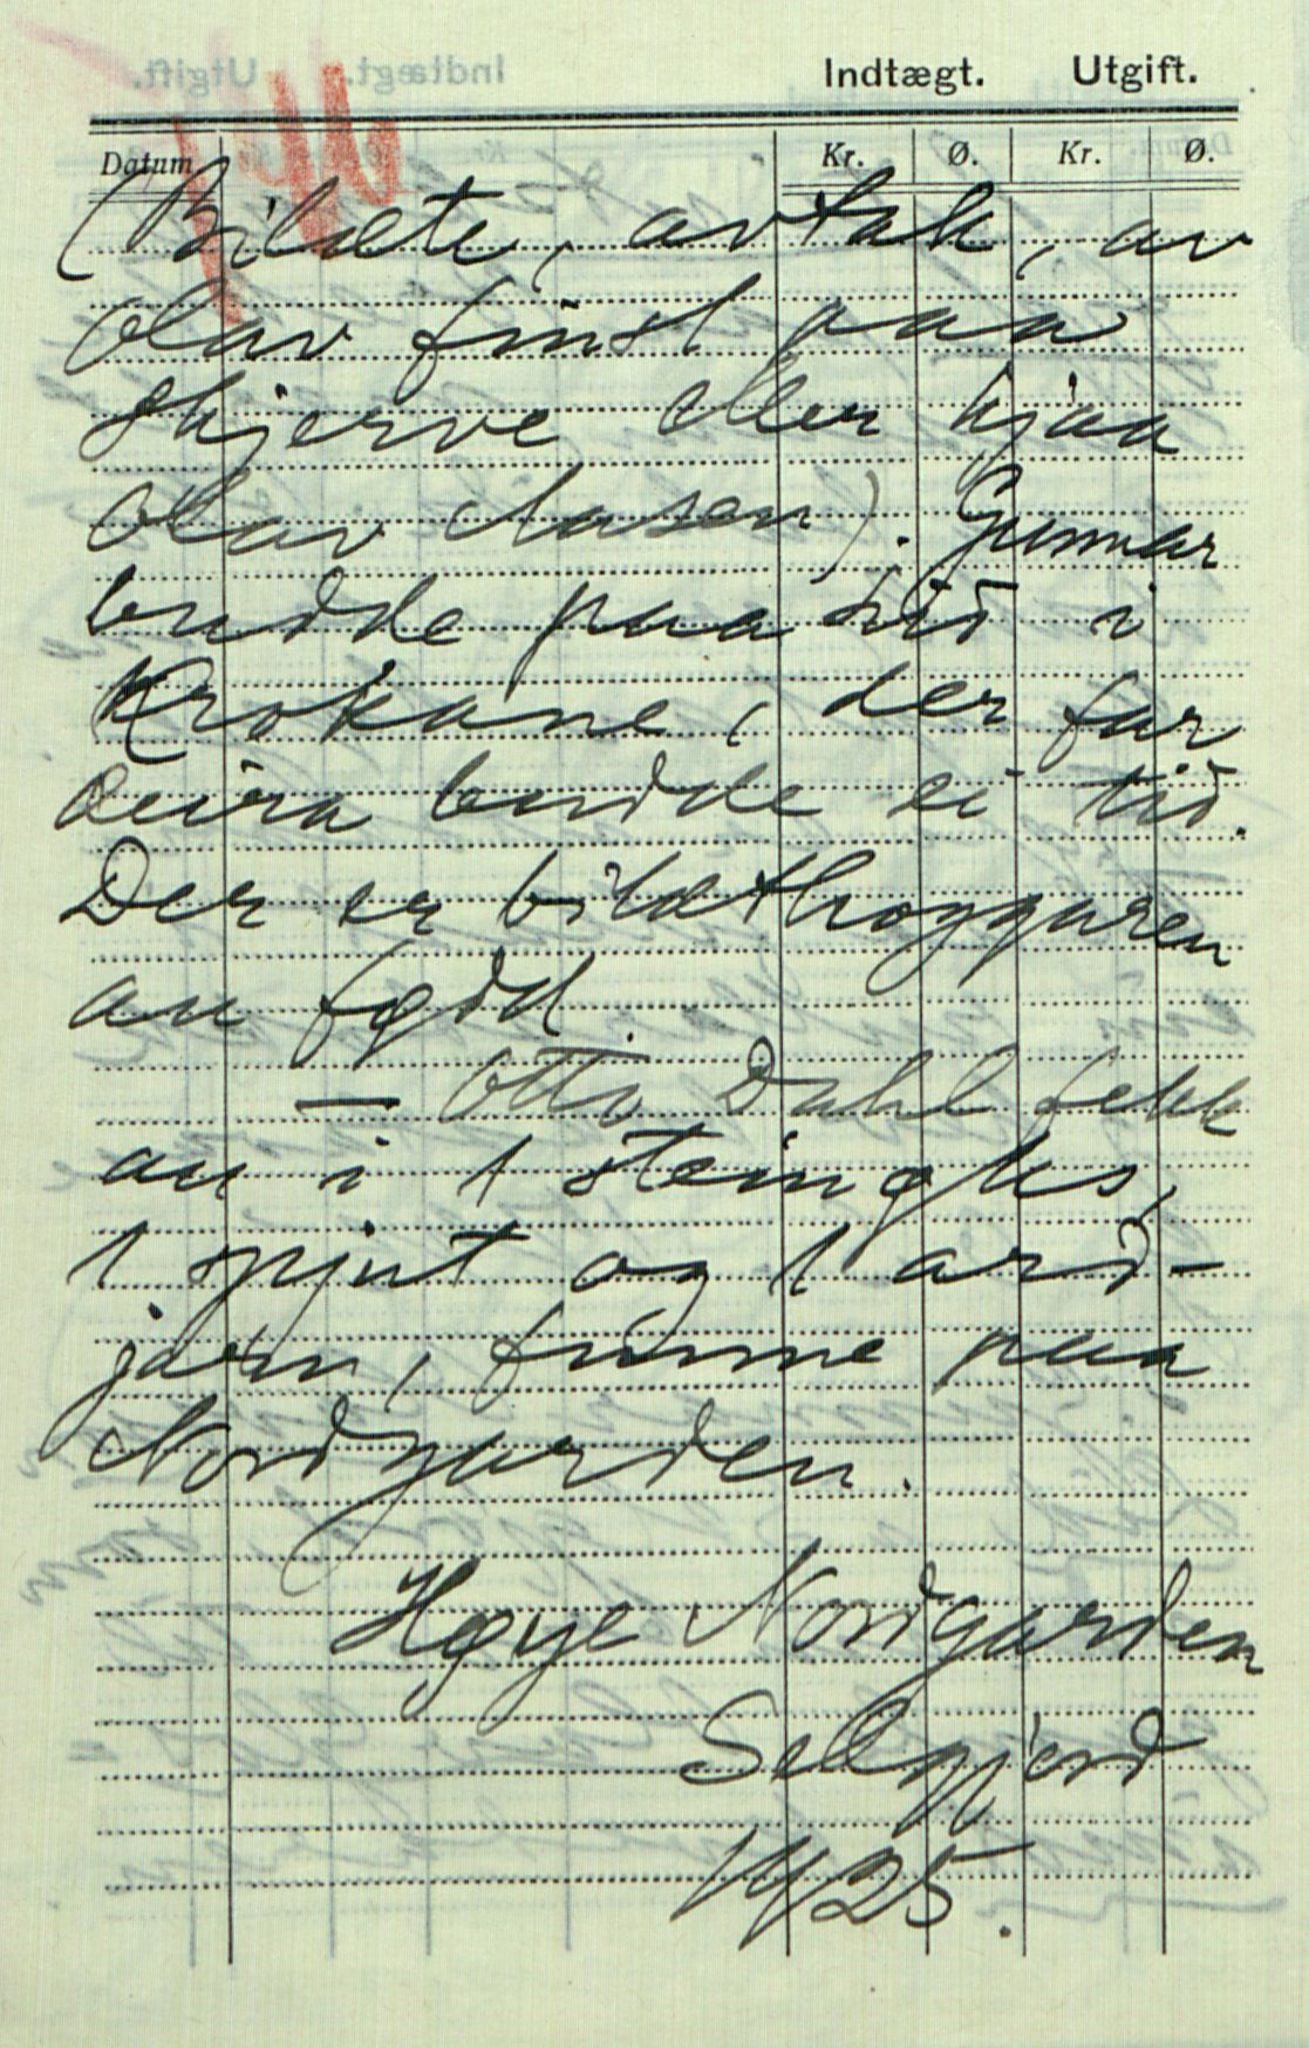 Indtægt. Utgift.
Datum Kr. Ø. Kr. Ø.
(Bilæte, avtak, av
Olav finst paa
Skjerve eller hjaa
Olav Aasen). Gunnar
budde paa hid i
Krokane, der far
deira budde ei tid.
Der er bilæthoggaren
au fødd.
— Otto Dahl fekk
au i 1 steinøks,
1 spjut og 1 ard-
jarn, funne paa
Nordgarden.
Høye Nordgarden
Selgjord
1925.